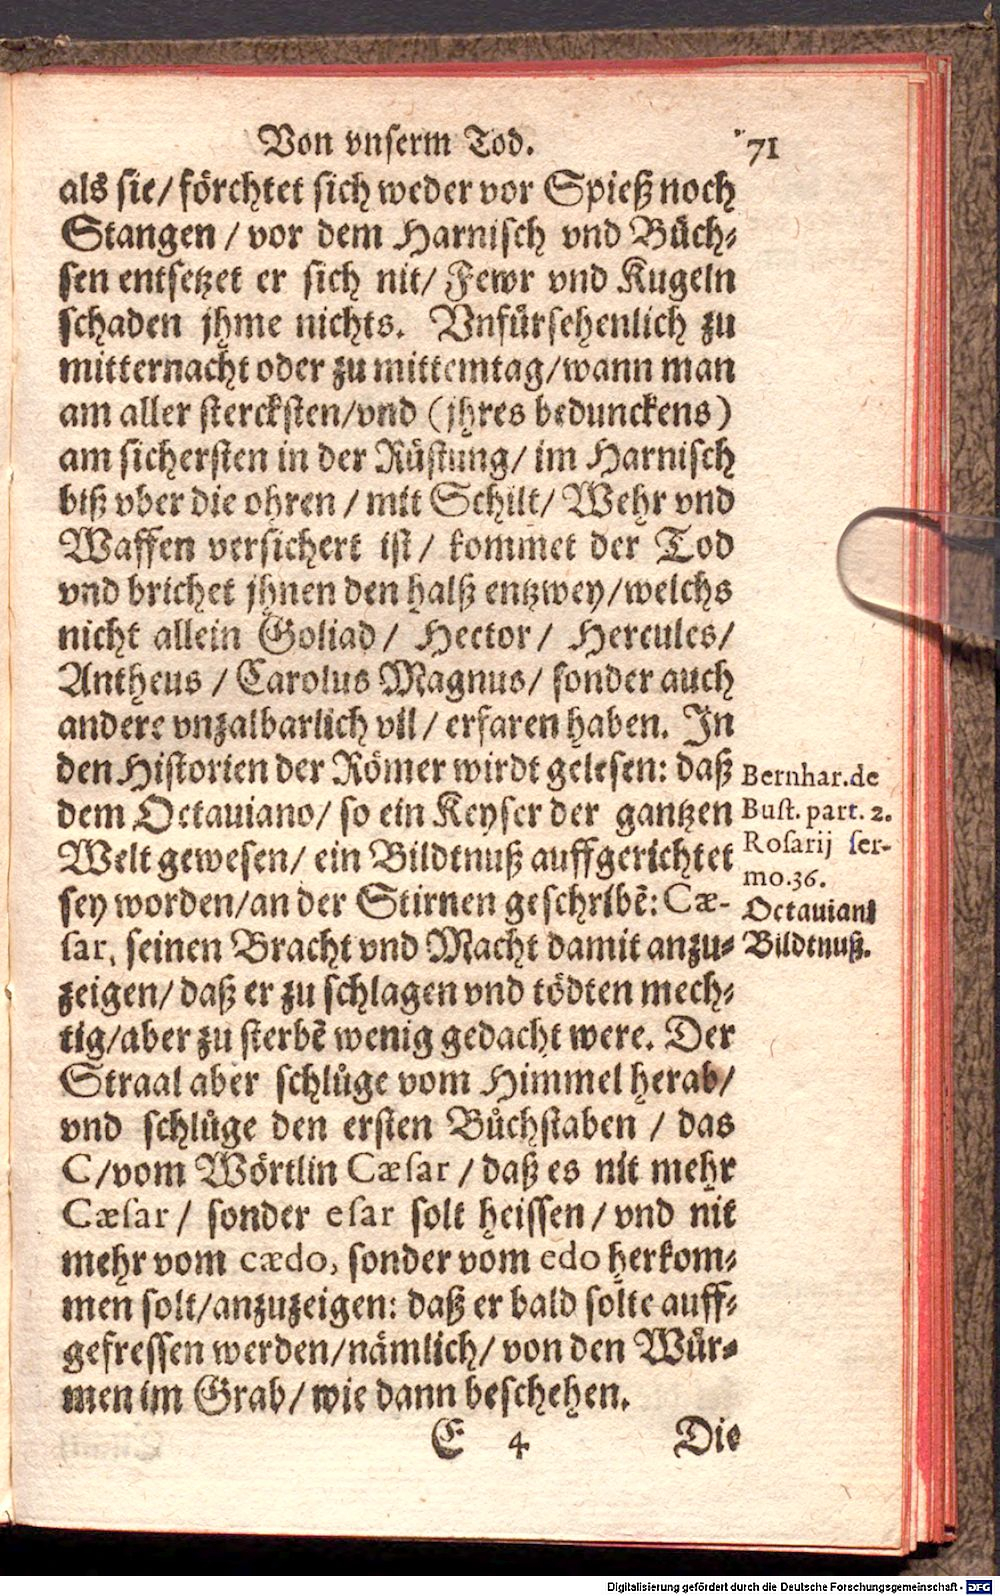 Von vnserm Tod. 71
als sie/ förchtet sich weder vor Spieß noch
Stangen / vor dem Harnisch vnd Büch-
sen entsetzet er sich nit/ Fewr vnd Kugeln
schaden jhme nichts. Vnfürsehenlich zu
mitternacht oder zu mittemtag/wann man
am aller stercksten/vnd (jhres bedunckens)
am sichersten in der Rüstung/ im Harnisch
biß vber die ohren / mit Schilt/ Wehr vnd
Waffen versichert ist / kommet der Tod
vnd brichet jhnen den halß entzwey/welchs
nicht allein Goliad/ Hector/ Hercules/
Antheus / Carolus Magnus/ sonder auch
andere vnzalbarlich vil/ erfaren haben. In
den Historien der Römer wirdt gelesen: daß
dem Octauiano/ so ein Keyser der gantzen
Welt gewesen/ ein Bildtnuß auffgerichtet
sey worden/an der Stirnen geschribẽ: Cæ-
sar, seinen Bracht vnd Macht damit anzu-
zeigen/ daß er zu schlagen vnd tödten mech-
tig/aber zu sterbẽ wenig gedacht were. Der
Straal aber schlůge vom Himmel herab/
vnd schlůge den ersten Bůchstaben / das
C/vom Wörtlin Cæsar / daß es nit mehr
Cæsar/ sonder esar solt heissen/ vnd nit
mehr vom cædo, sonder vom edo herkom-
men solt/anzuzeigen: daß er bald solte auff-
gefressen werden/nämlich/ von den Wür-
men im Grab/ wie dann beschehen.
Bernhar. de
Bust. part. 2.
Rosarij ser-
mo. 36.
Octauiani
Bildtnuß.
E 4 Die
Digitalisierung gefördert durch die Deutsche Forschungsgemeinschaft - DFG